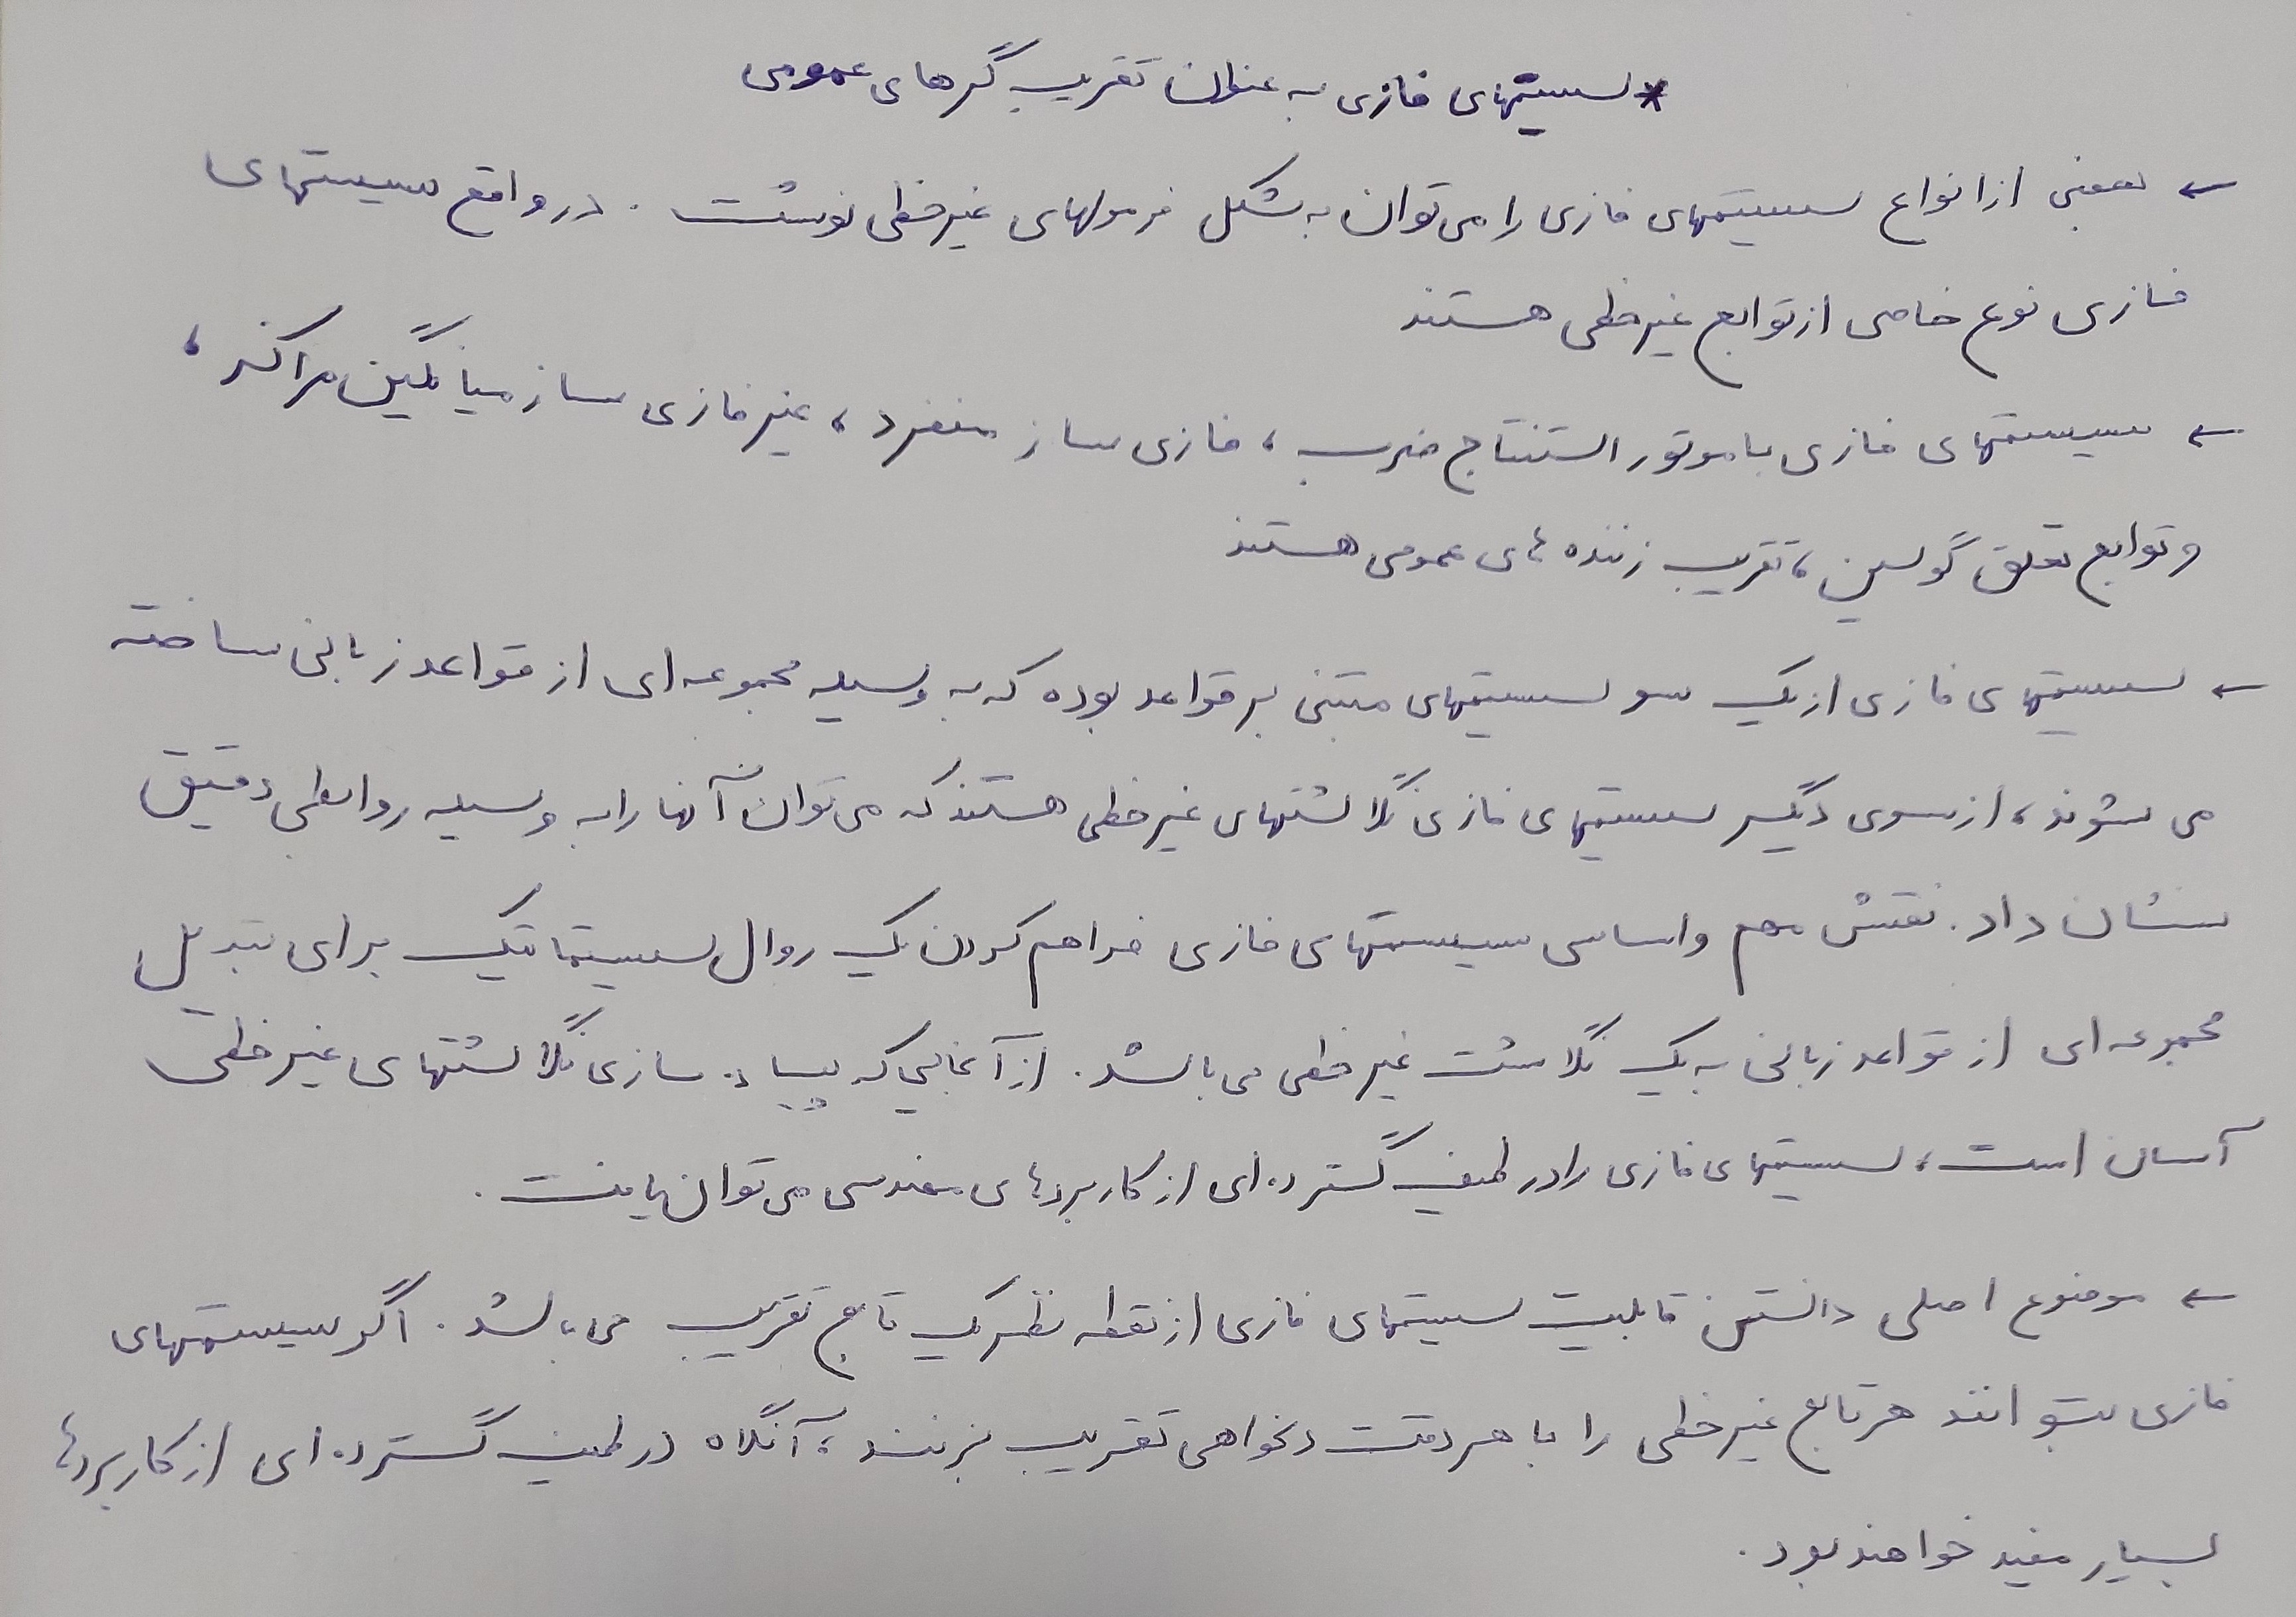 * سیستمهای فازی به عنوان تقریب گرهای عمومی
← بعضی از انواع سیستمهای فازی را می توان به شکل فرمولهای غیرخطی نوشت. در واقع سیستمهای
فازی نوع خاصی از توابع غیرخطی هستند
← سیستمهای فازی با موتور استنتاج ضرب، فازی ساز منفرد، غیرفازی ساز میانگین مراکز،
و توابع تعلق گوسین، تقریب زننده های عمومی هستند
← سیستمهای فازی از یک سو سیستمهای مبتنی بر قواعد بوده که به وسیله مجموعه ای از قواعد زبانی ساخته
می شوند، از سوی دیگر سیستمهای فازی نگاشتهای غیرخطی هستند که می توان آنها را به وسیله روابطی دقیق
نشان داد. نقش مهم و اساسی سیستمهای فازی فراهم کردن یک روال سیستماتیک برای تبدیل
مجموعه ای از قواعد زبانی به یک نگاشت غیرخطی می باشد. از آنجایی که پیاده سازی نگاشتهای غیرخطی
آسان است، سیستمهای فازی را در طیف گسترده ای از کاربردهای مهندسی می توان یافت.
← موضوع اصلی دانستن قابلیت سیستمهای فازی از نقطه نظر یک تابع تقریب می باشد. اگر سیستمهای
فازی بتوانند هر تابع غیرخطی را با هر دقت دلخواهی تقریب بزنند، آنگاه در طیف گسترده ای از کاربردها
بسیار مفید خواهند بود.